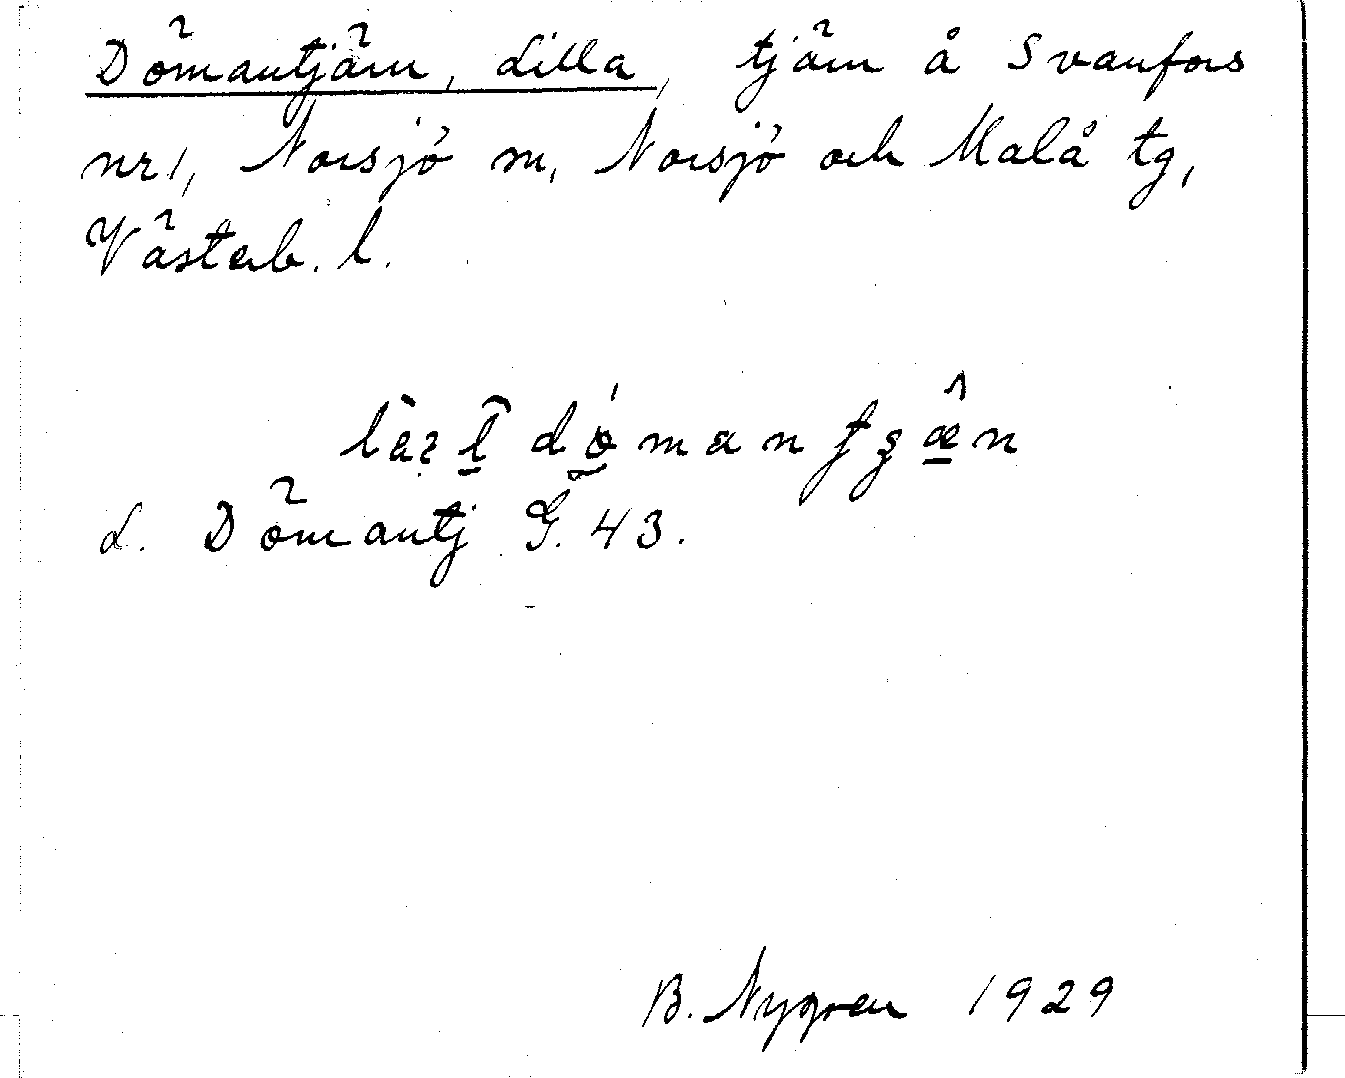 Dömantjärn, Lilla, tjärn å Svanfors
nr 1, Norsjö sn, Norsjö och Malå tg,
Västerb. l.
dómantjæ̂n
L. Dömantj G. 43.
B. Nygren 1929